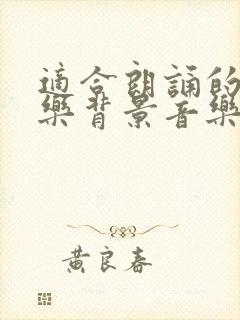 適合朗誦的
樂背景音樂
黃良春